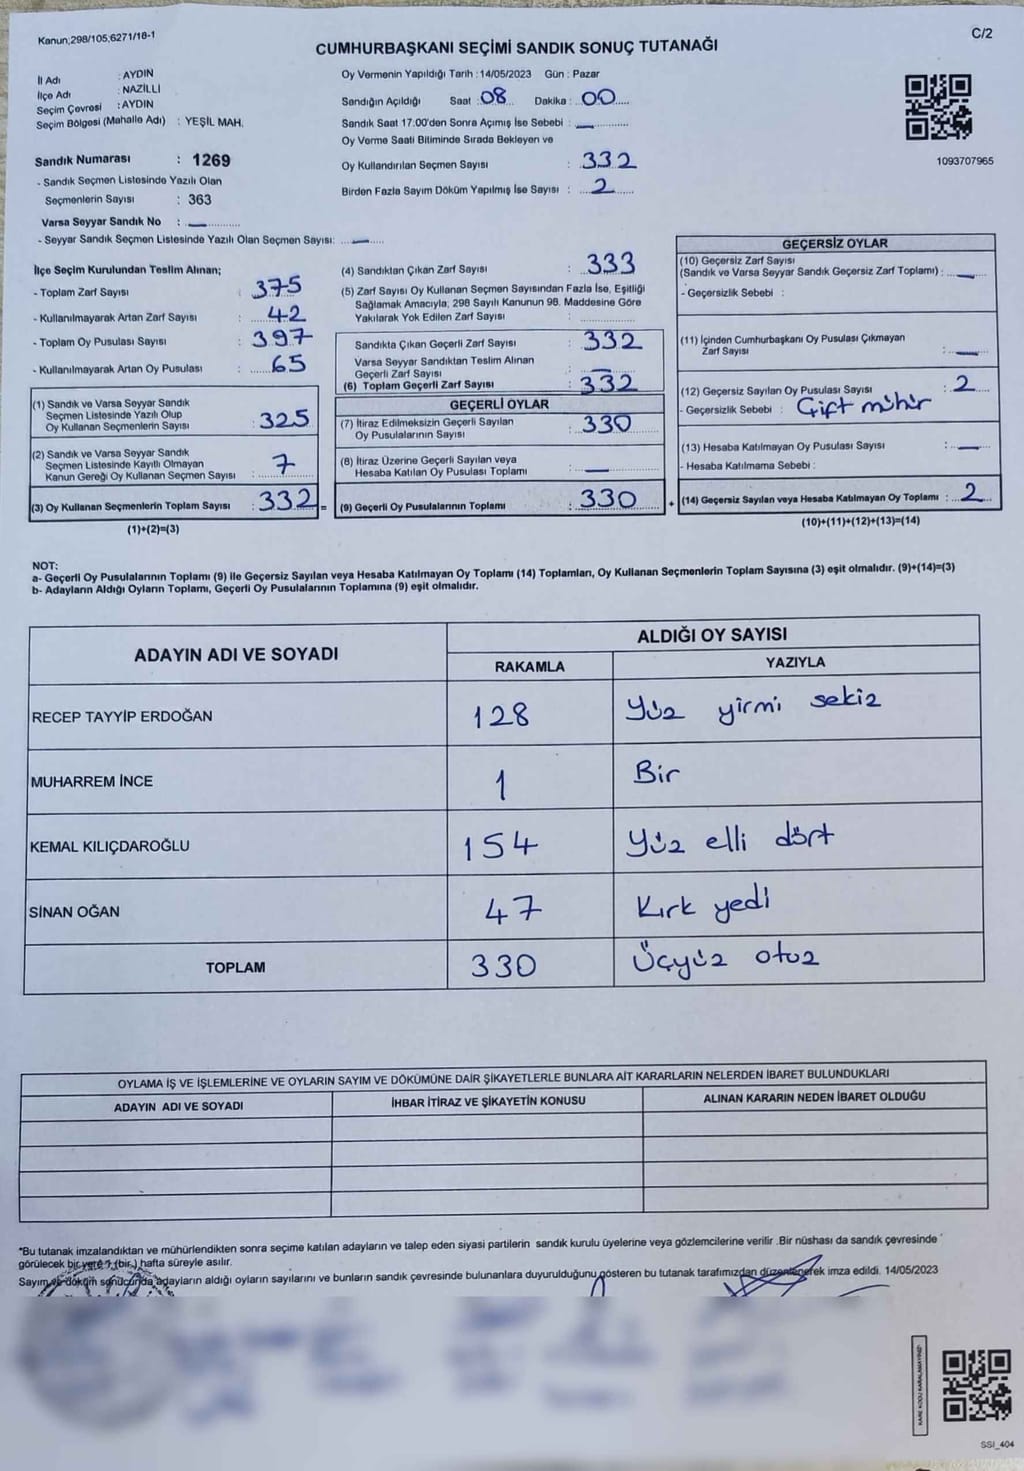 Kanun;298/105;6271/18-1
C/2
CUMHURBAŞKANI SEÇİMİ SANDIK SONUÇ TUTANAĞI
İl Adı : AYDIN
İlçe Adı : NAZİLLİ
Seçim Çevresi : AYDIN
Seçim Bölgesi (Mahalle Adı) : YEŞİL MAH.
Sandık Numarası : 1269
- Sandık Seçmen Listesinde Yazılı Olan
Seçmenlerin Sayısı : 363
Varsa Seyyar Sandık No : —
- Seyyar Sandık Seçmen Listesinde Yazılı Olan Seçmen Sayısı: —
Oy Vermenin Yapıldığı Tarih : 14/05/2023 Gün : Pazar
Sandığın Açıldığı Saat : 08 Dakika : 00
Sandık Saat 17.00'den Sonra Açımış İse Sebebi : —
Oy Verme Saati Bitiminde Sırada Bekleyen ve
Oy Kullandırılan Seçmen Sayısı : 332
Birden Fazla Sayım Döküm Yapılmış İse Sayısı : 2
1093707965
İlçe Seçim Kurulundan Teslim Alınan;
- Toplam Zarf Sayısı : 375
- Kullanılmayarak Artan Zarf Sayısı : 42
- Toplam Oy Pusulası Sayısı : 397
- Kullanılmayarak Artan Oy Pusulası : 65
(1) Sandık ve Varsa Seyyar Sandık
Seçmen Listesinde Yazılı Olup
Oy Kullanan Seçmenlerin Sayısı : 325
(2) Sandık ve Varsa Seyyar Sandık
Seçmen Listesinde Kayıtlı Olmayan
Kanun Gereği Oy Kullanan Seçmen Sayısı : 7
(3) Oy Kullanan Seçmenlerin Toplam Sayısı : 332 =
(1)+(2)=(3)
(4) Sandıktan Çıkan Zarf Sayısı : 333
(5) Zarf Sayısı Oy Kullanan Seçmen Sayısından Fazla İse, Eşitliği
Sağlamak Amacıyla, 298 Sayılı Kanunun 98. Maddesine Göre
Yakılarak Yok Edilen Zarf Sayısı :
Sandıkta Çıkan Geçerli Zarf Sayısı : 332
Varsa Seyyar Sandıktan Teslim Alınan
Geçerli Zarf Sayısı : —
(6) Toplam Geçerli Zarf Sayısı : 332
GEÇERLİ OYLAR
(7) İtiraz Edilmeksizin Geçerli Sayılan
Oy Pusulalarının Sayısı : 330
(8) İtiraz Üzerine Geçerli Sayılan veya
Hesaba Katılan Oy Pusulası Toplamı : —
(9) Geçerli Oy Pusulalarının Toplamı : 330 +
GEÇERSİZ OYLAR
(10) Geçersiz Zarf Sayısı
(Sandık ve Varsa Seyyar Sandık Geçersiz Zarf Toplamı) : —
- Geçersizlik Sebebi :
(11) İçinden Cumhurbaşkanı Oy Pusulası Çıkmayan
Zarf Sayısı : —
(12) Geçersiz Sayılan Oy Pusulası Sayısı : 2
- Geçersizlik Sebebi : Çift mühür
(13) Hesaba Katılmayan Oy Pusulası Sayısı : —
- Hesaba Katılmama Sebebi :
(14) Geçersiz Sayılan veya Hesaba Katılmayan Oy Toplamı : 2
(10)+(11)+(12)+(13)=(14)
NOT:
a- Geçerli Oy Pusulalarının Toplamı (9) ile Geçersiz Sayılan veya Hesaba Katılmayan Oy Toplamı (14) Toplamları, Oy Kullanan Seçmenlerin Toplam Sayısına (3) eşit olmalıdır. (9)+(14)=(3)
b- Adayların Aldığı Oyların Toplamı, Geçerli Oy Pusulalarının Toplamına (9) eşit olmalıdır.
ADAYIN ADI VE SOYADI
ALDIĞI OY SAYISI
RAKAMLA YAZIYLA
RECEP TAYYİP ERDOĞAN 128 Yüz yirmi sekiz
MUHARREM İNCE 1 Bir
KEMAL KILIÇDAROĞLU 154 Yüz elli dört
SİNAN OĞAN 47 Kırk yedi
TOPLAM 330 Üçyüz otuz
OYLAMA İŞ VE İŞLEMLERİNE VE OYLARIN SAYIM VE DÖKÜMÜNE DAİR ŞİKAYETLERLE BUNLARA AİT KARARLARIN NELERDEN İBARET BULUNDUKLARI
ADAYIN ADI VE SOYADI İHBAR İTİRAZ VE ŞİKAYETİN KONUSU ALINAN KARARIN NEDEN İBARET OLDUĞU
*Bu tutanak imzalandıktan ve mühürlendikten sonra seçime katılan adayların ve talep eden siyasi partilerin sandık kurulu üyelerine veya gözlemcilerine verilir .Bir nüshası da sandık çevresinde
görülecek bir yere 1 (bir.) hafta süreyle asılır.
Sayım ve döküm sonucunda adayların aldığı oyların sayılarını ve bunların sandık çevresinde bulunanlara duyurulduğunu gösteren bu tutanak tarafımızdan düzenlenerek imza edildi. 14/05/2023
KARE KODU KARALAMAYINIZ!
SSI_404